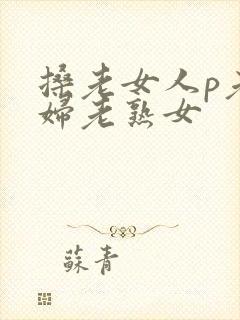 搡老女人p老
婦老熟女
蘇青